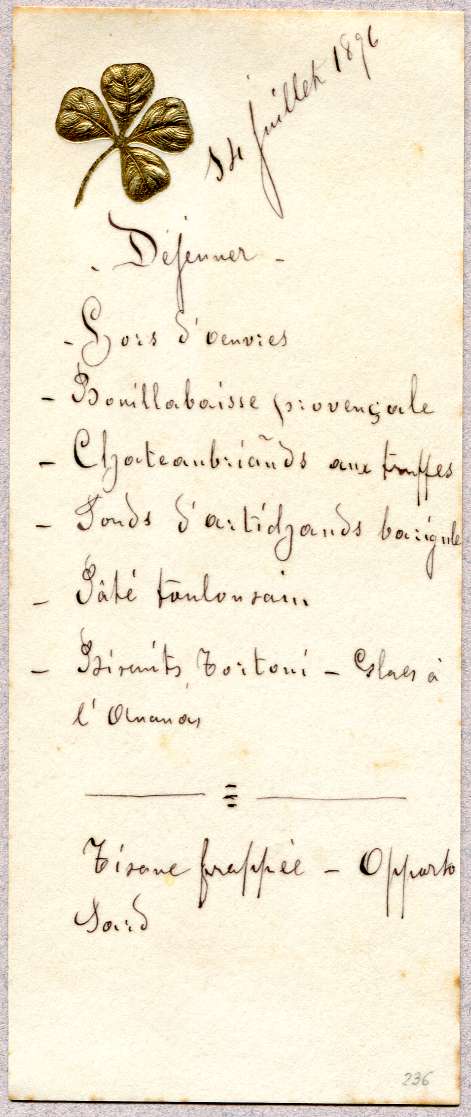 14 Juillet 1896
Déjeuner -
- Hors d'oeuvres
- Bouillabaisse provençale
- Chateaubriands aux truffes
- Fonds d'artichauds barigule
- Pâté toulousain
- Biscuits Tortoni - Glaces à
l'Ananas
Tisane frappée - Opporto
236